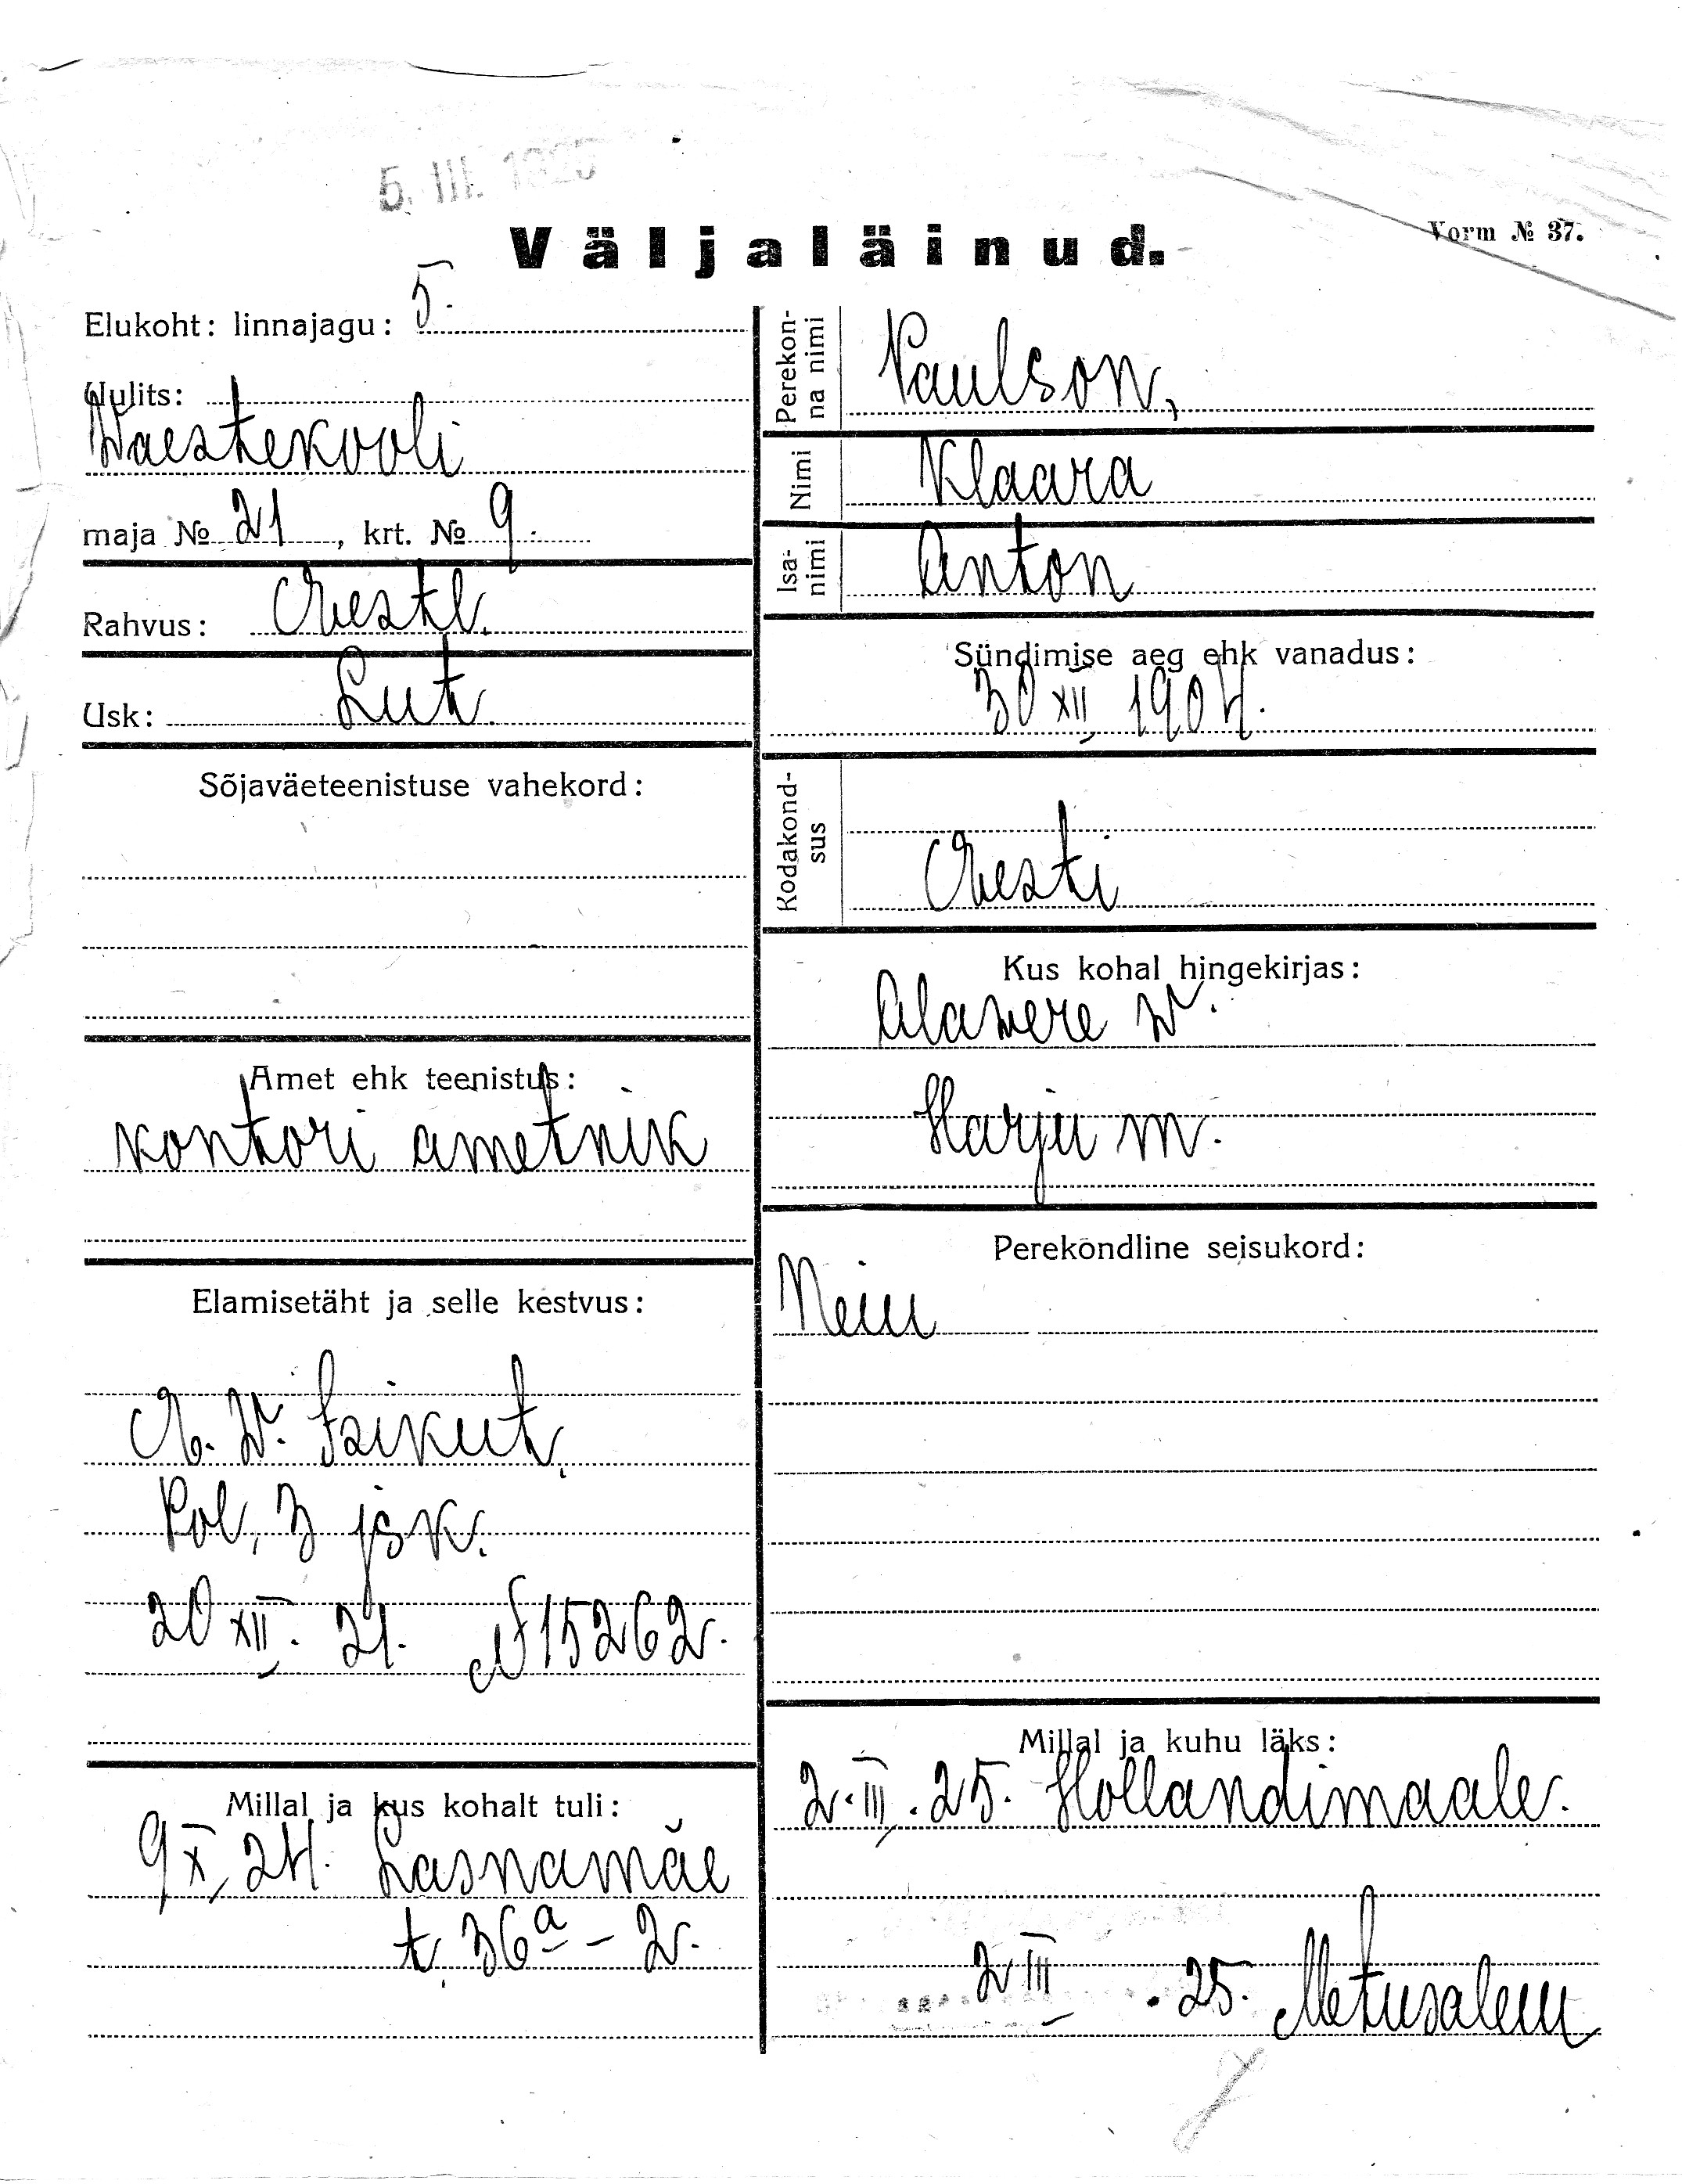 5. III. 1925
Väljaläinud.
Vorm № 37.
Elukoht: linnajagu: 5.
Uulits:
Waestekooli
maja № 21, krt. № 9.
Rahvus: Eestl.
Usk: Lut.
Sõjaväeteenistuse vahekord:
Amet ehk teenistus:
kontori ametnik
Elamisetäht ja selle kestvus:
E. W. Isikut.
Pol. 3 jsk.
20 XII. 21. № 15262.
Millal ja kus kohalt tuli:
9 X 24. Lasnamäe
t. 36a – 2.
Perekon-
na nimi
Paulson,
Nimi Klaara
Isa-
nimi
Anton
Sündimise aeg ehk vanadus:
30 XII 1904.
Kodakond-
sus
Eesti
Kus kohal hingekirjas:
Alawere w.
Harju m.
Perekondline seisukord:
Neiu
Millal ja kuhu läks:
2. III. 25. Hollandimaale.
2 III. 25. Metusalem